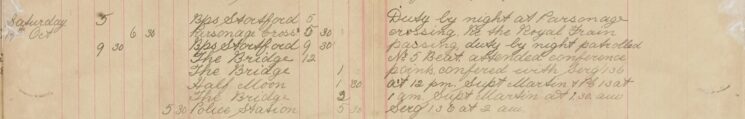 Saturday 5 Bps Stortford 5 Duty by night at Parsonage
19th Oct 6 30 Parsonage Cross 5 30 crossing. Re the Royal Train
9 30 Bps Stortford 9 30 passing, duty by night patrolled
The Bridge 12 No 5 Beat. attended conference
The Bridge 1 point, confered with Serg 136
Half Moon 1 30 at 12 pm. Supt Martin & PS 13 at
The Bridge 2 1 am Supt Martin at 1.30. am
5 30 Police Station 5 30 Serg 136 at 2 am